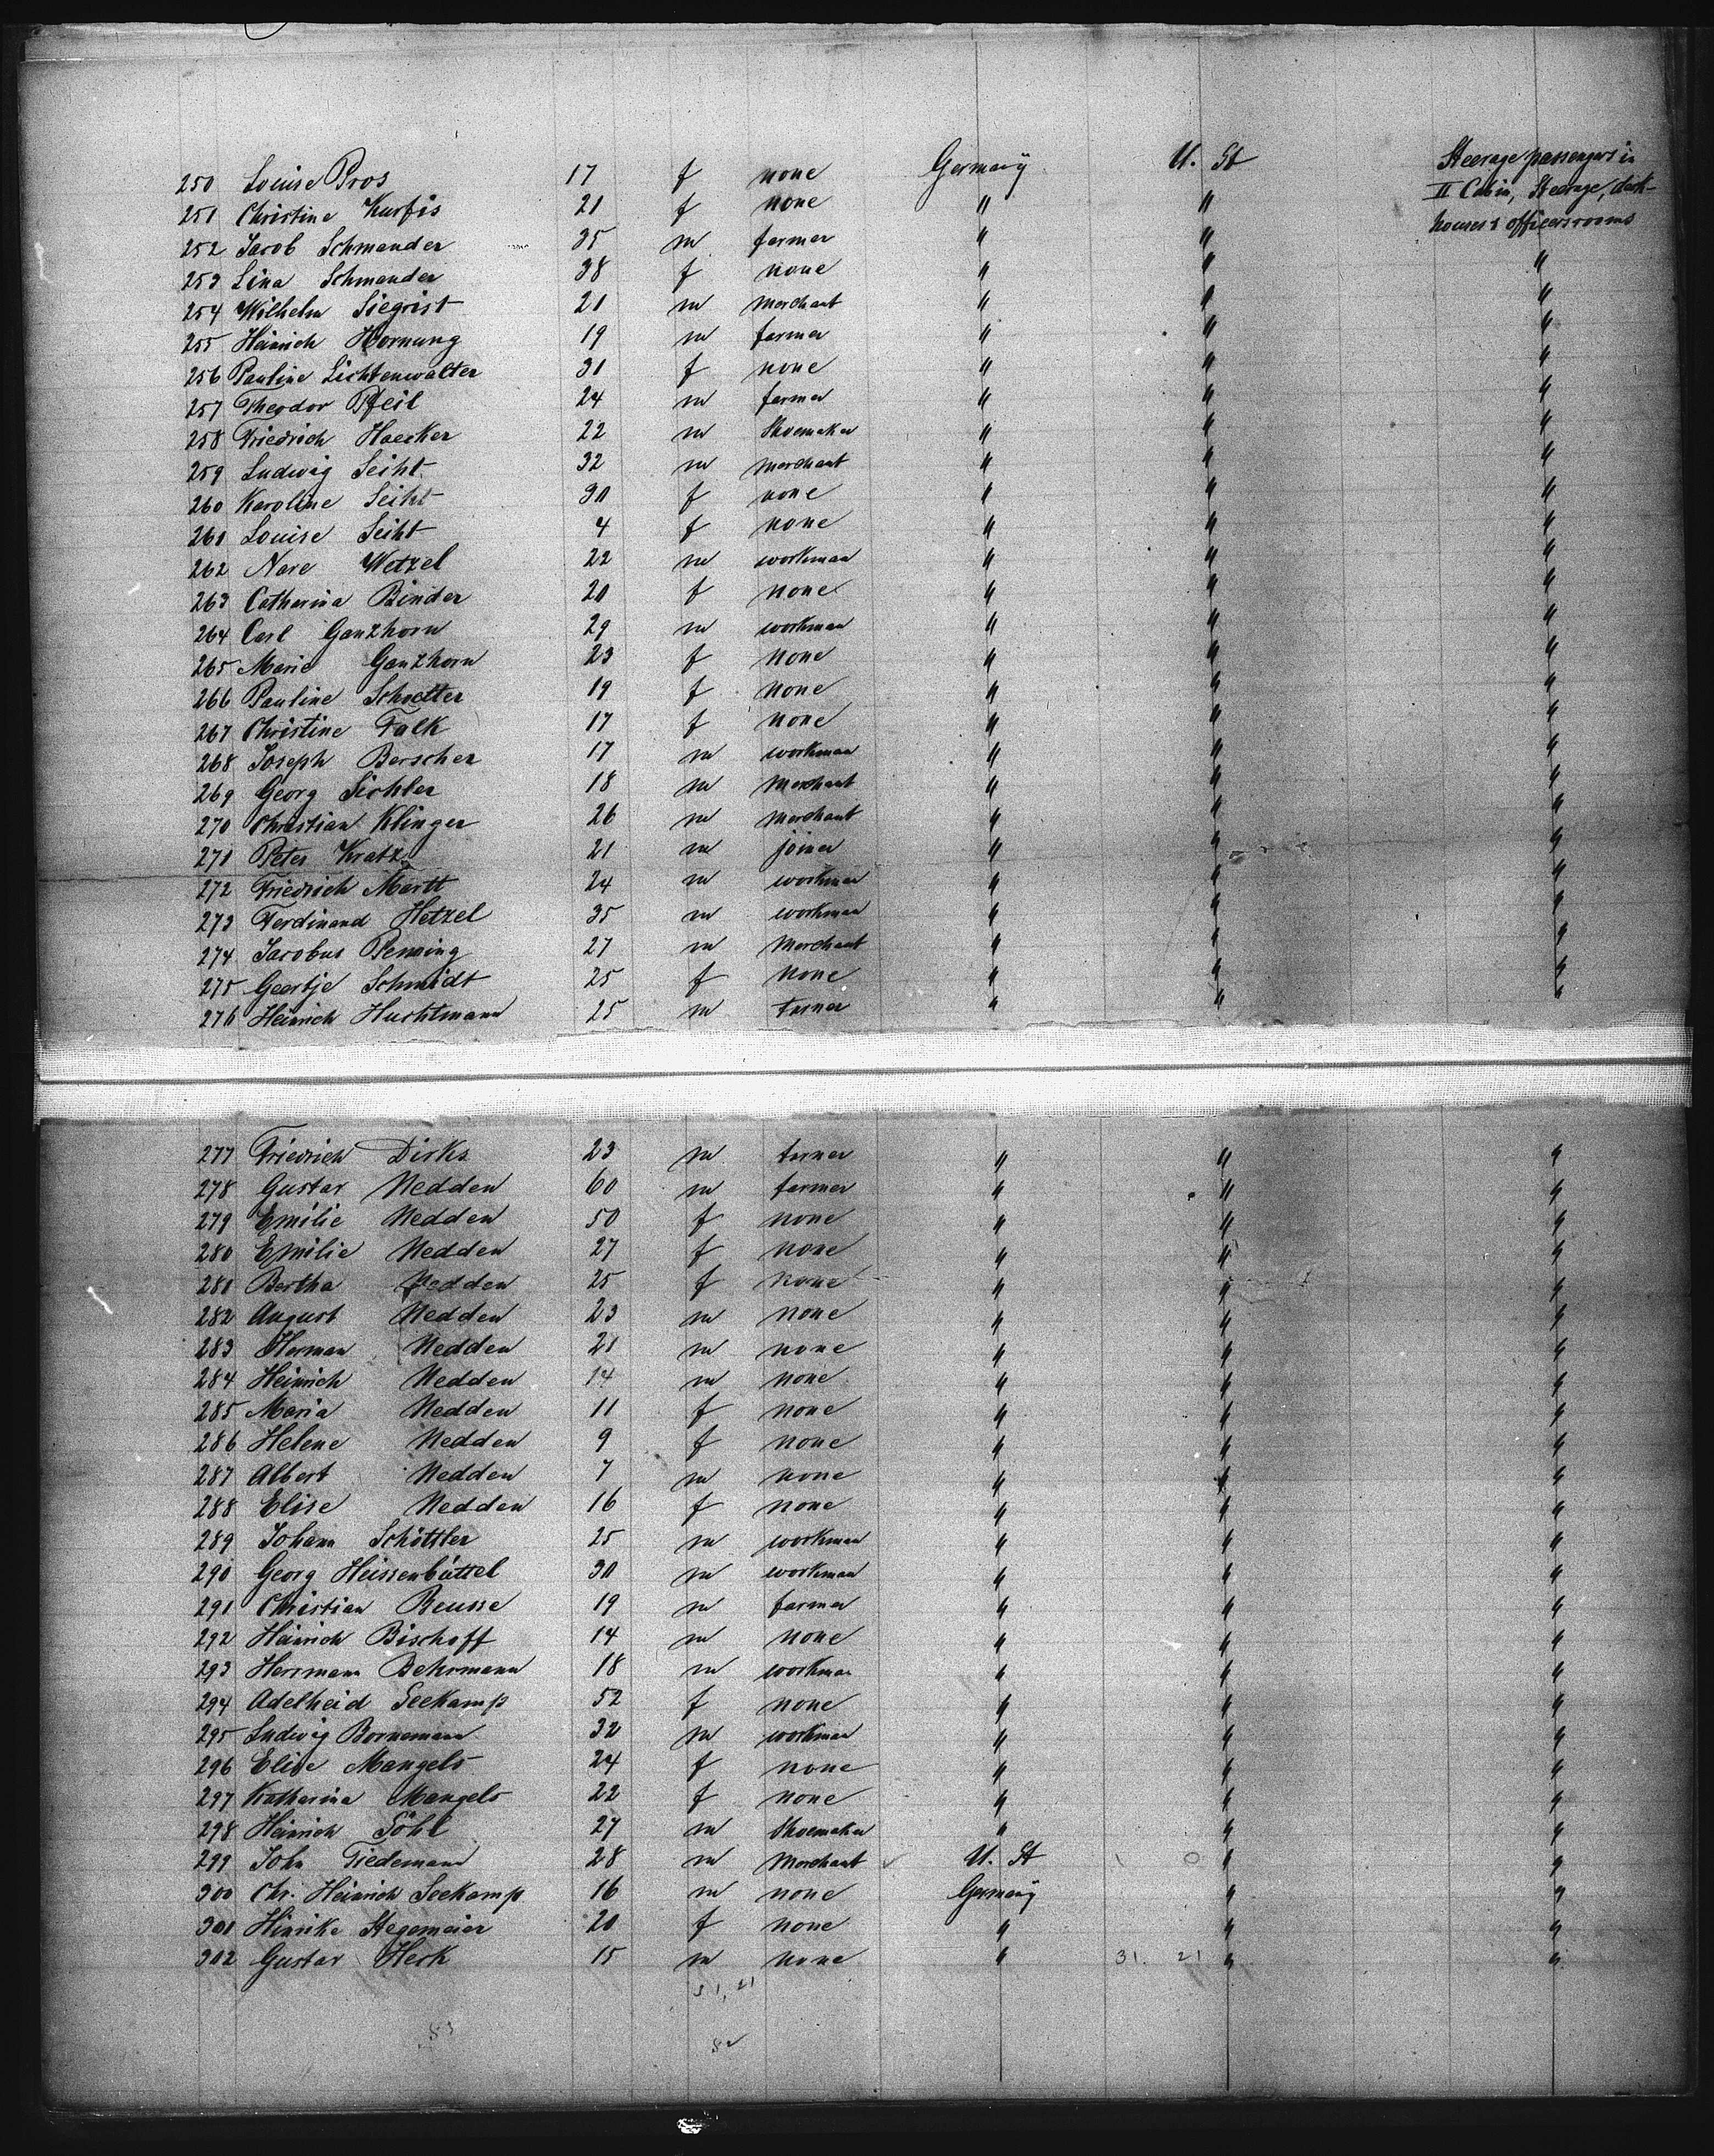 250 Louise Pros 17 f none Germany U. St Steerage passengers in
II Cabin, Steerage, deck-
251 Christine Kurfis 21 f none " "
houses & officersrooms
252 Jacob Schmander 35 m farmer " "
253 Lina Schmander 38 f none " " "
254 Wilhelm Siegrist 21 m merchant " " "
255 Heinrich Hornung 19 m farmer " " "
256 Pauline Lichtenwalter 31 f none " " "
257 Theodor Pfeil 24 m farmer " " "
258 Friedrich Haecker 22 m Shoemaker " " "
259 Ludwig Seiht 32 m merchant " " "
260 Karoline Seiht 30 f none " " "
261 Louise Seiht 4 f none " " "
262 Wetzel 22 m workman " " "
263 Catharina Binder 20 f none " " "
264 Carl Ganzhorn 29 m workman " " "
265 Marie Ganzhorn 23 f none " " "
266 Pauline Schoetter 19 f none " " "
267 Christine Falk 17 f none " " "
268 Joseph Berscher 17 m workman " " "
269 Georg Sichler 18 m Merchant " " "
270 Christian Klinger 26 m merchant " " "
271 Peter Kratz 21 m joiner " " "
272 Friedrich Martt 24 m workman " " "
273 Ferdinand Hetzel 35 m workman " " "
274 Jacobus 27 m Merchant " " "
275 Geertje Schmidt 25 f none " " "
276 Heinrich Huchtmann 25 m turner " " "
277 Friedrich Dirks 23 m turner " " "
278 Gustav Nedden 60 m farmer " " "
279 Emilie Nedden 50 f none " " "
280 Emilie Nedden 27 f none " " "
281 Bertha Nedden 25 f none " " "
282 August Nedden 23 m none " " "
283 Herman Nedden 21 m none " " "
284 Heinrich Nedden 14 m none " " "
285 Maria Nedden 11 f none " " "
286 Helene Nedden 9 f none " " "
287 Albert Nedden 7 m none " " "
288 Elise Nedden 16 f none " " "
289 Johann Schöttler 25 m workman " " "
290 Georg Heissenbüttel 30 m workman " " "
291 Christian Beusse 19 m farmer " " "
292 Heinrich Bischoff 14 m none " " "
293 Herrmann Behrmann 18 m workman " " "
294 Adelheid Seekamp 52 f none " " "
295 Ludwig Bornemann 32 m workman " " "
296 Elise Mangels 24 f none " " "
297 Katharina Mangels 22 f none " " "
298 Heinrich Söhl 27 m Shoemaker " " "
299 John Tiedemann 28 m Merchant U. St 1 0 " "
300 Chr. Heinrich Seekamp 16 m none Germany " "
301 Hinrike Stegemeier 20 f none " " "
302 Gustav Herk 15 m none " 31. 21 " "
31, 21
83